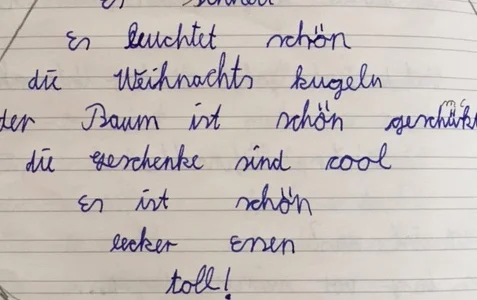 Es schneit
Es leuchtet schön
die Weihnachts kugeln
der Baum ist schön geschükt
die geschenke sind cool
Es ist schön
lecker essen
toll!